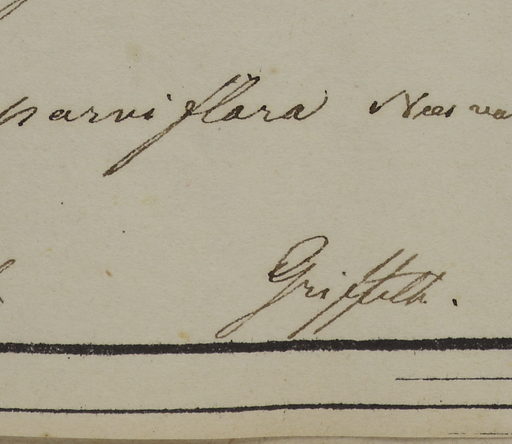 parviflora Nees va
Griffith.